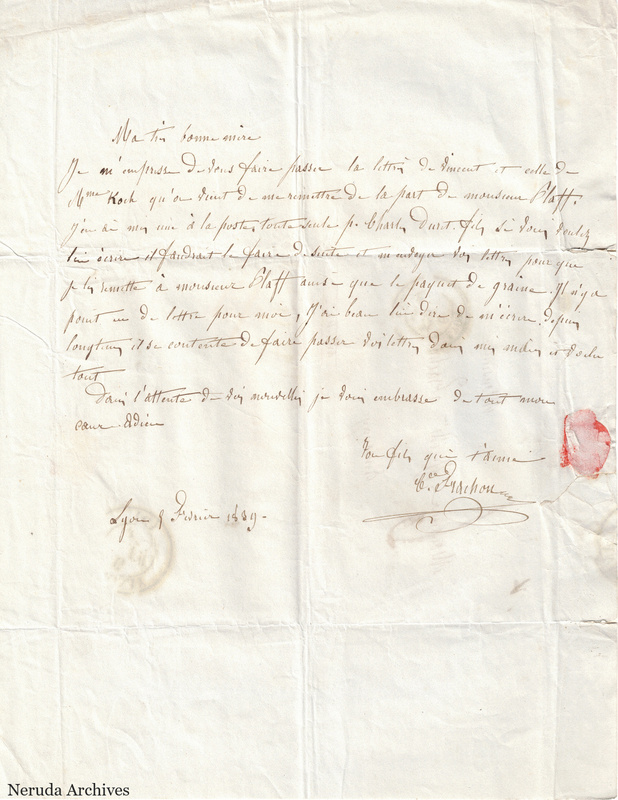 Ma très bonne mère
Je m'empresse de vous faire passer la lettre de Vincent et celle de
Mme Koch qu'on vient de me remettre de la part de monsieur Pfaff.
J'en ai mis une à la poste toute seule pr Charles Duret fils si vous voulez
lui écrire il faudrait le faire de suite et m'envoyer vos lettres pour que
je les remette à monsieur Pfaff ainsi que le paquet de graine. Il n'y a
point eu de lettre pour moi, j'ai beau lui dire de m'écrire depuis
longtems il se contente de faire passer vos lettres dans mes mains et voila
tout
Dans l'attente de vos nouvelles je vous embrasse de tout mon
cœur. Adieu
Ton fils qui t'aime
Frachon
Lyon 8 Février 1839.
Neruda Archives